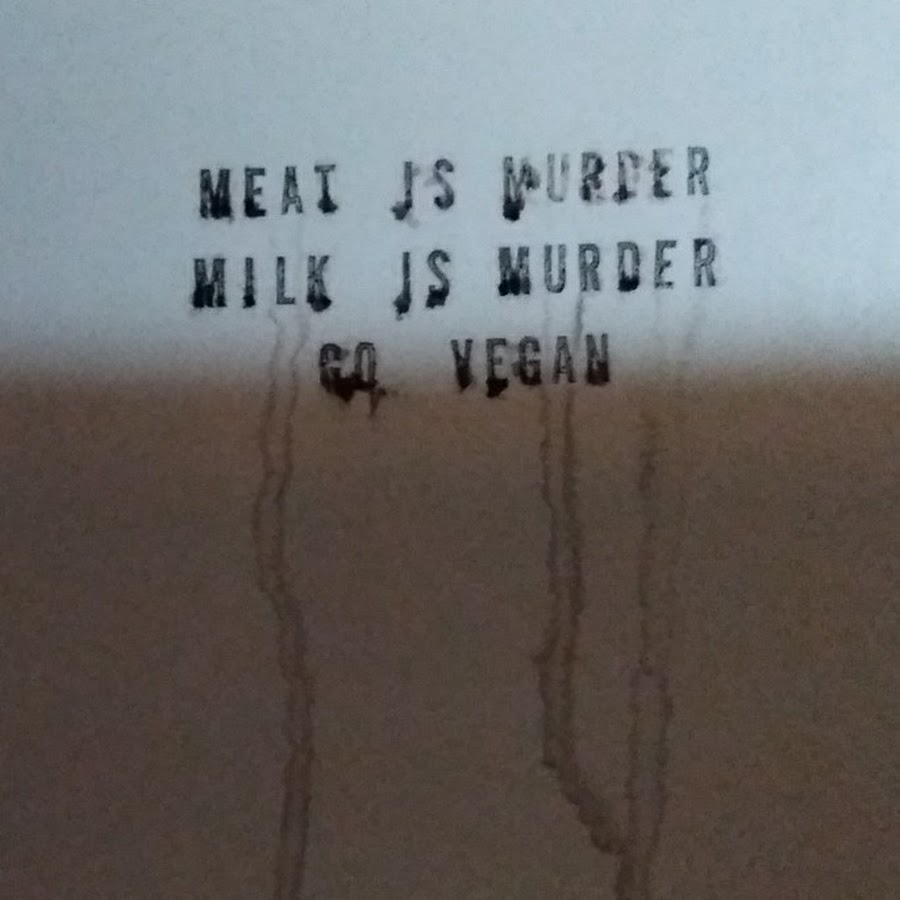 MEAT IS MURDER
MILK IS MURDER
GO VEGAN